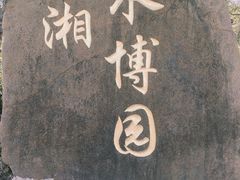 湘
博园